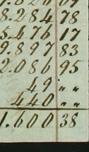 8.284 78
3.476 17
9.897 83
2.086 95
49 " "
440 " "
1.600 38